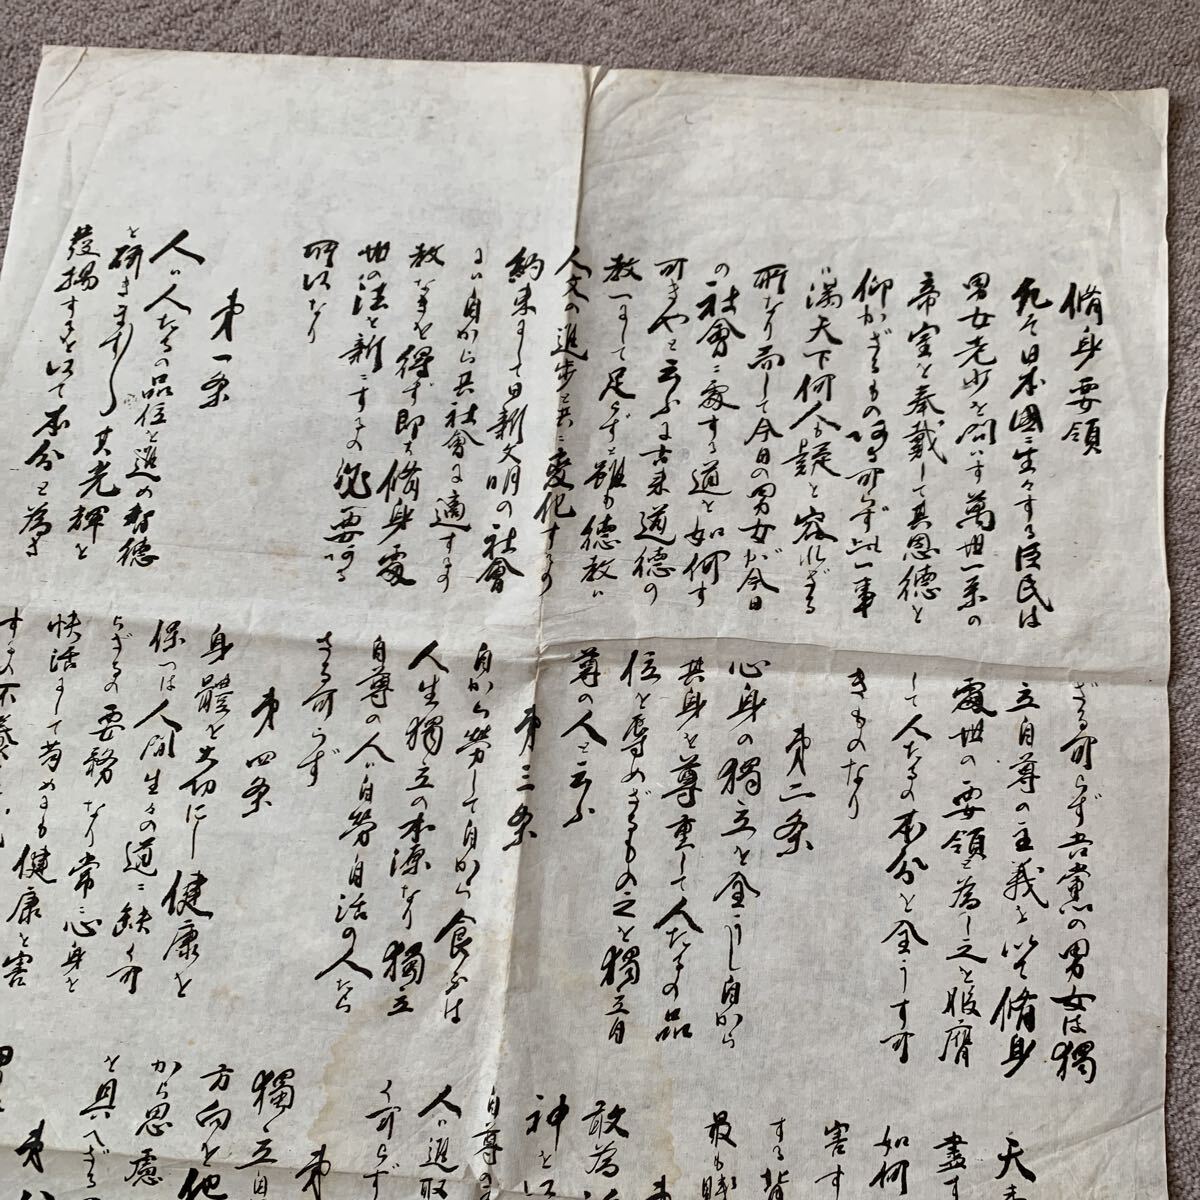 修身要領
凡そ日本國ニ生々する臣民は
男女老少を問はす萬世一系の
帝室を奉戴して其恩徳を
仰かざるもの阿る可らず此一事
は満天下何人も疑を容れざる
所なり而して今日の男女が今日
の社會ニ處する道を如何す
可きやと云ふに古来道徳の
教一にして足らずと雖も徳教は
人文の進歩と共ニ変化するの
約束にして日新文明の社會
には自から其社會に適するの
教なきを得ず即ち修身處
世の法を新ニするの必要阿る
所以なり
第一条
人は人たるの品位を進め智徳
を研きます〳〵其光輝を
發揚するを以て本分と為さ
ざる可らず吾黨の男女は獨
立自尊の主義を以て修身
處世の要領と為し之を服膺
して人たるの本分を全うす可
きものなり
第二条
心身の獨立を全うし自から
其身を尊重して人たるの品
位を辱めざるもの之を獨立自
尊の人と云ふ
第三条
自から勞して自から食ふは
人生獨立の本源なり獨立
自尊の人は自勞自活の人たら
ざる可らず
第四条
身體を大切にし健康を
保つは人間生々の道ニ缺く可
らざるの要務なり常ニ心身を
快活にして苟めにも健康を害
するの不養生を
天
盡す
如何
害す
する背
最も賤
第
敢為
神を以
自尊の
人は進取
く可らず
第
獨立自
方向を他
から思慮
を具へざる
第八